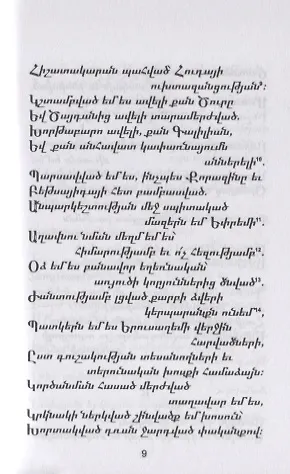 Հիշատակարան պահված՝ Հուդայի
ուխտազանցության⁹։
Կշտամբված եմ ես ավելի քան Ծուրը
Եվ Ծայդանից ավելի տարամերժված.
Խորթաբարո ավելի, քան Գալիլիան,
Եվ քան անհավատ կափառնայումն
աններելի¹⁰.
Պարսավված եմ ես, ինչպես Քորազինը և
Բեթսայիդայի հետ բամբասված.
Անպարկեշտության մեջ սպիտակ
մազերն եմ Եփրեմի¹¹.
Աղավնու նման մեղմ եմ ես՝
Հիմարությամբ և ո՛չ հեզությամբ¹².
Օձ եմ ես բանավոր եղեռնական՝
առյուծի կորյուններից ծնված¹³.
Ժանտությամբ լցված քարբի ձվերի
կերպարանքն ունեմ¹⁴,
Պատկերն եմ ես Երուսաղեմի վերջին
հարվածների,
Ըստ գուշակության տեսանողների և
տերունական խոսքի համաձայն։
Կործանման հասած մերժված
տաղավար եմ ես,
Կրկնակի ներկված շինվածք եմ խոսուն՝
Խորտակված դռան ջարդված փականքով։
9